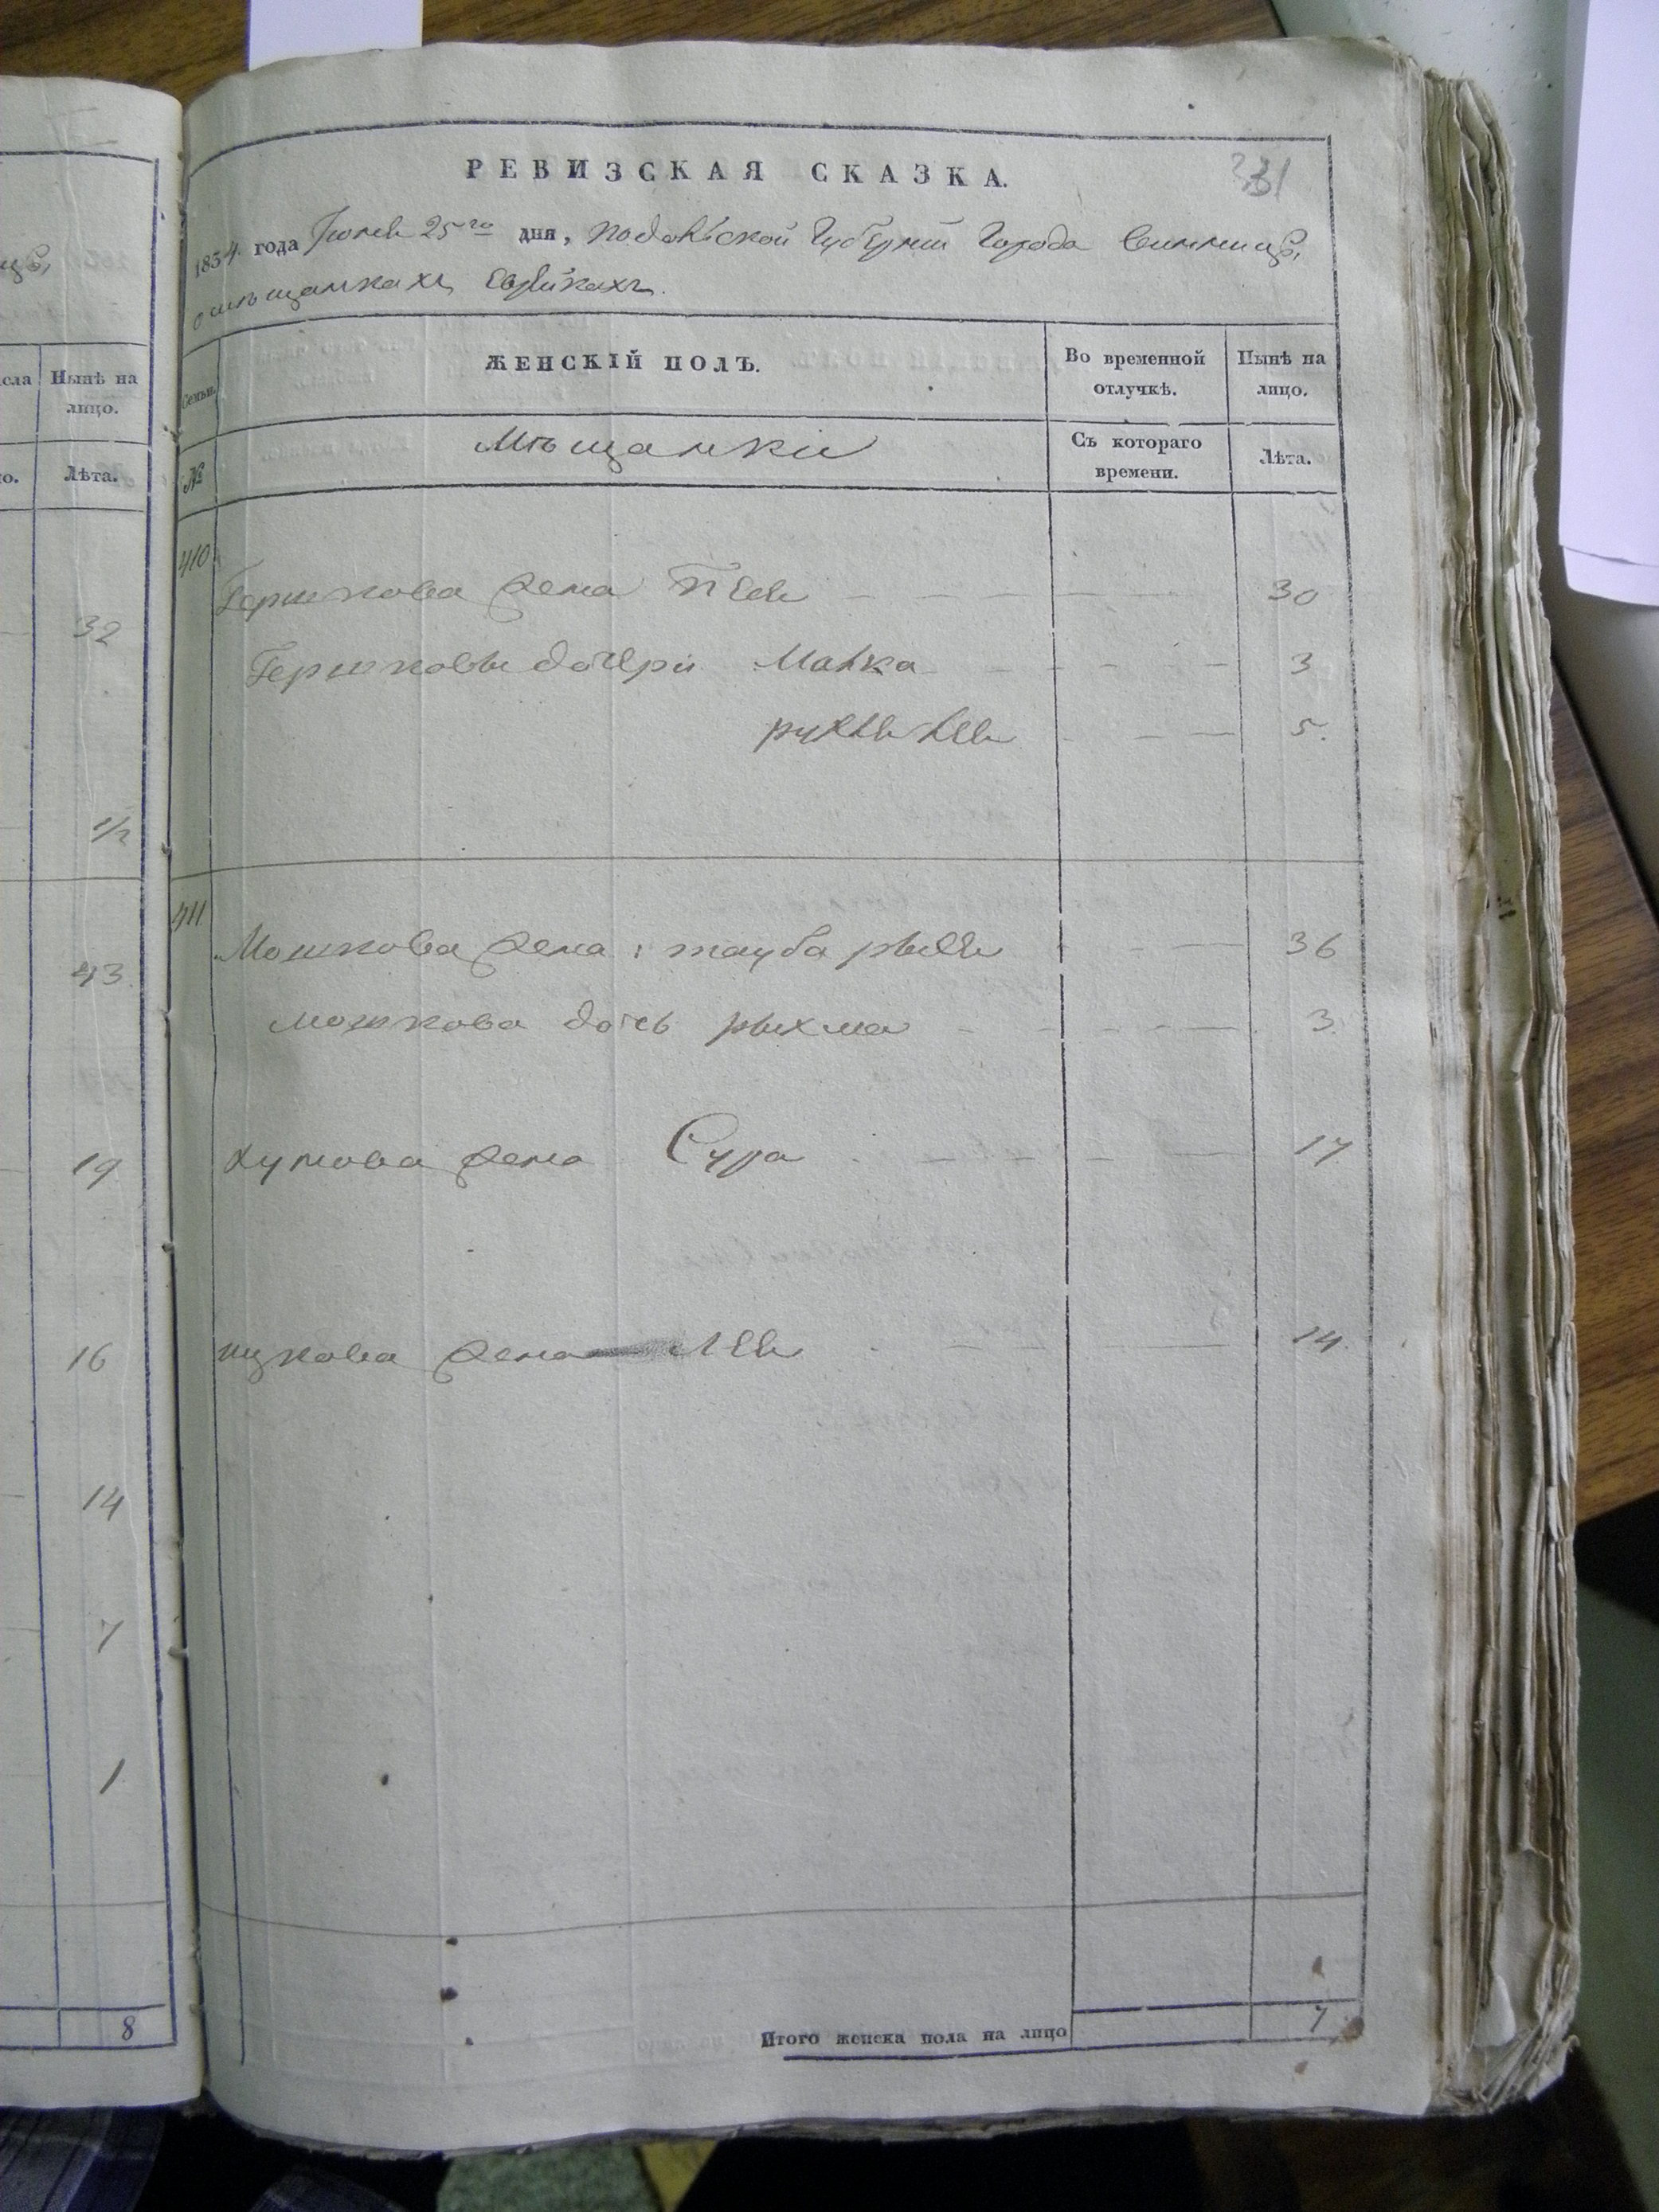 ца,
сла
Нынѣ на
лицо.
о.
Лѣта.
32
1/2
43
19
16
14
7
1
8
РЕВИЗСКАЯ СКАЗКА.
331
1834. года Іюня 25го дня, Подольской Губерніи Города Винницы,
о мѣщанкахъ Еврѣйкахъ.
Семьи.
ЖЕНСКІЙ ПОЛЪ.
Во временной
отлучкѣ.
Нынѣ на
лицо.
№
Мѣщанки
Съ котораго
времени.
Лѣта.
410
Гершкова жена 30
Гершковы дочери Малка 3
5.
411
Мошкова жена: тауба рыся 36
Мошкова дочь рыхма 3.
жена Сура 17
ицкова жена Лея 14.
Итого женска пола на лицо 7